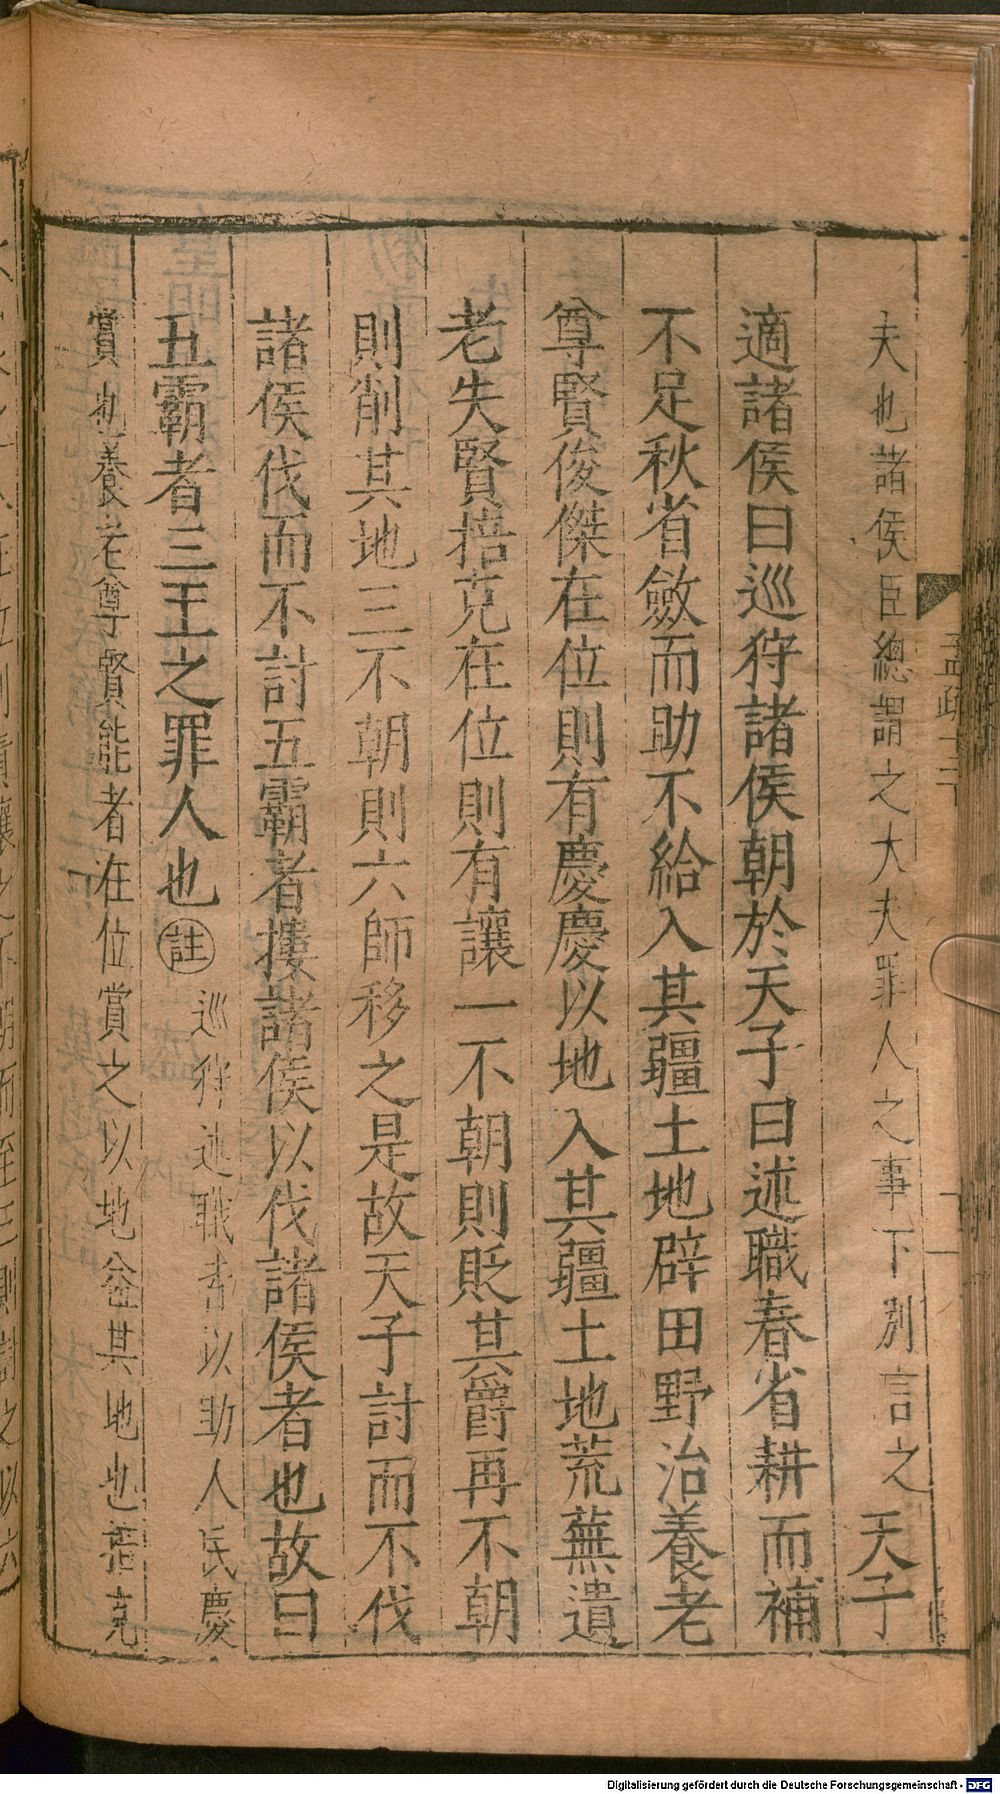 夫也諸侯臣總謂之大夫罪人之事下別言之天子
適諸侯曰巡狩諸侯朝於天子曰述職春省耕而補
不足秋省斂而助不給入其疆土地辟田野治養老
尊賢俊傑在位則有慶慶以地入其疆土地荒蕪遺
老失賢掊克在位則有讓一不朝則貶其爵再不朝
則削其地三不朝則六師移之是故天子討而不伐
諸侯伐而不討五霸者摟諸侯以伐諸侯者也故曰
五霸者三王之罪人也註巡狩述職者以助人民慶
賞也養老尊賢能者在位賞之以地益其地也掊克
Digitalisierung gefördert durch die Deutsche Forschungsgemeinschaft - DFG